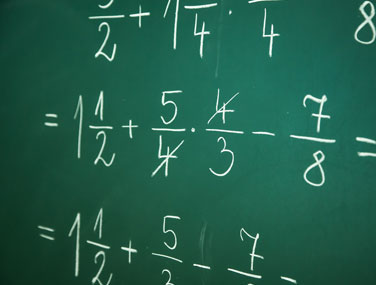 /2 + 1 /4 · /4 8
= 1 1/2 + 5/4 · 4/3 − 7/8 =
= 1 1/2 + 5/3 − 7/ −